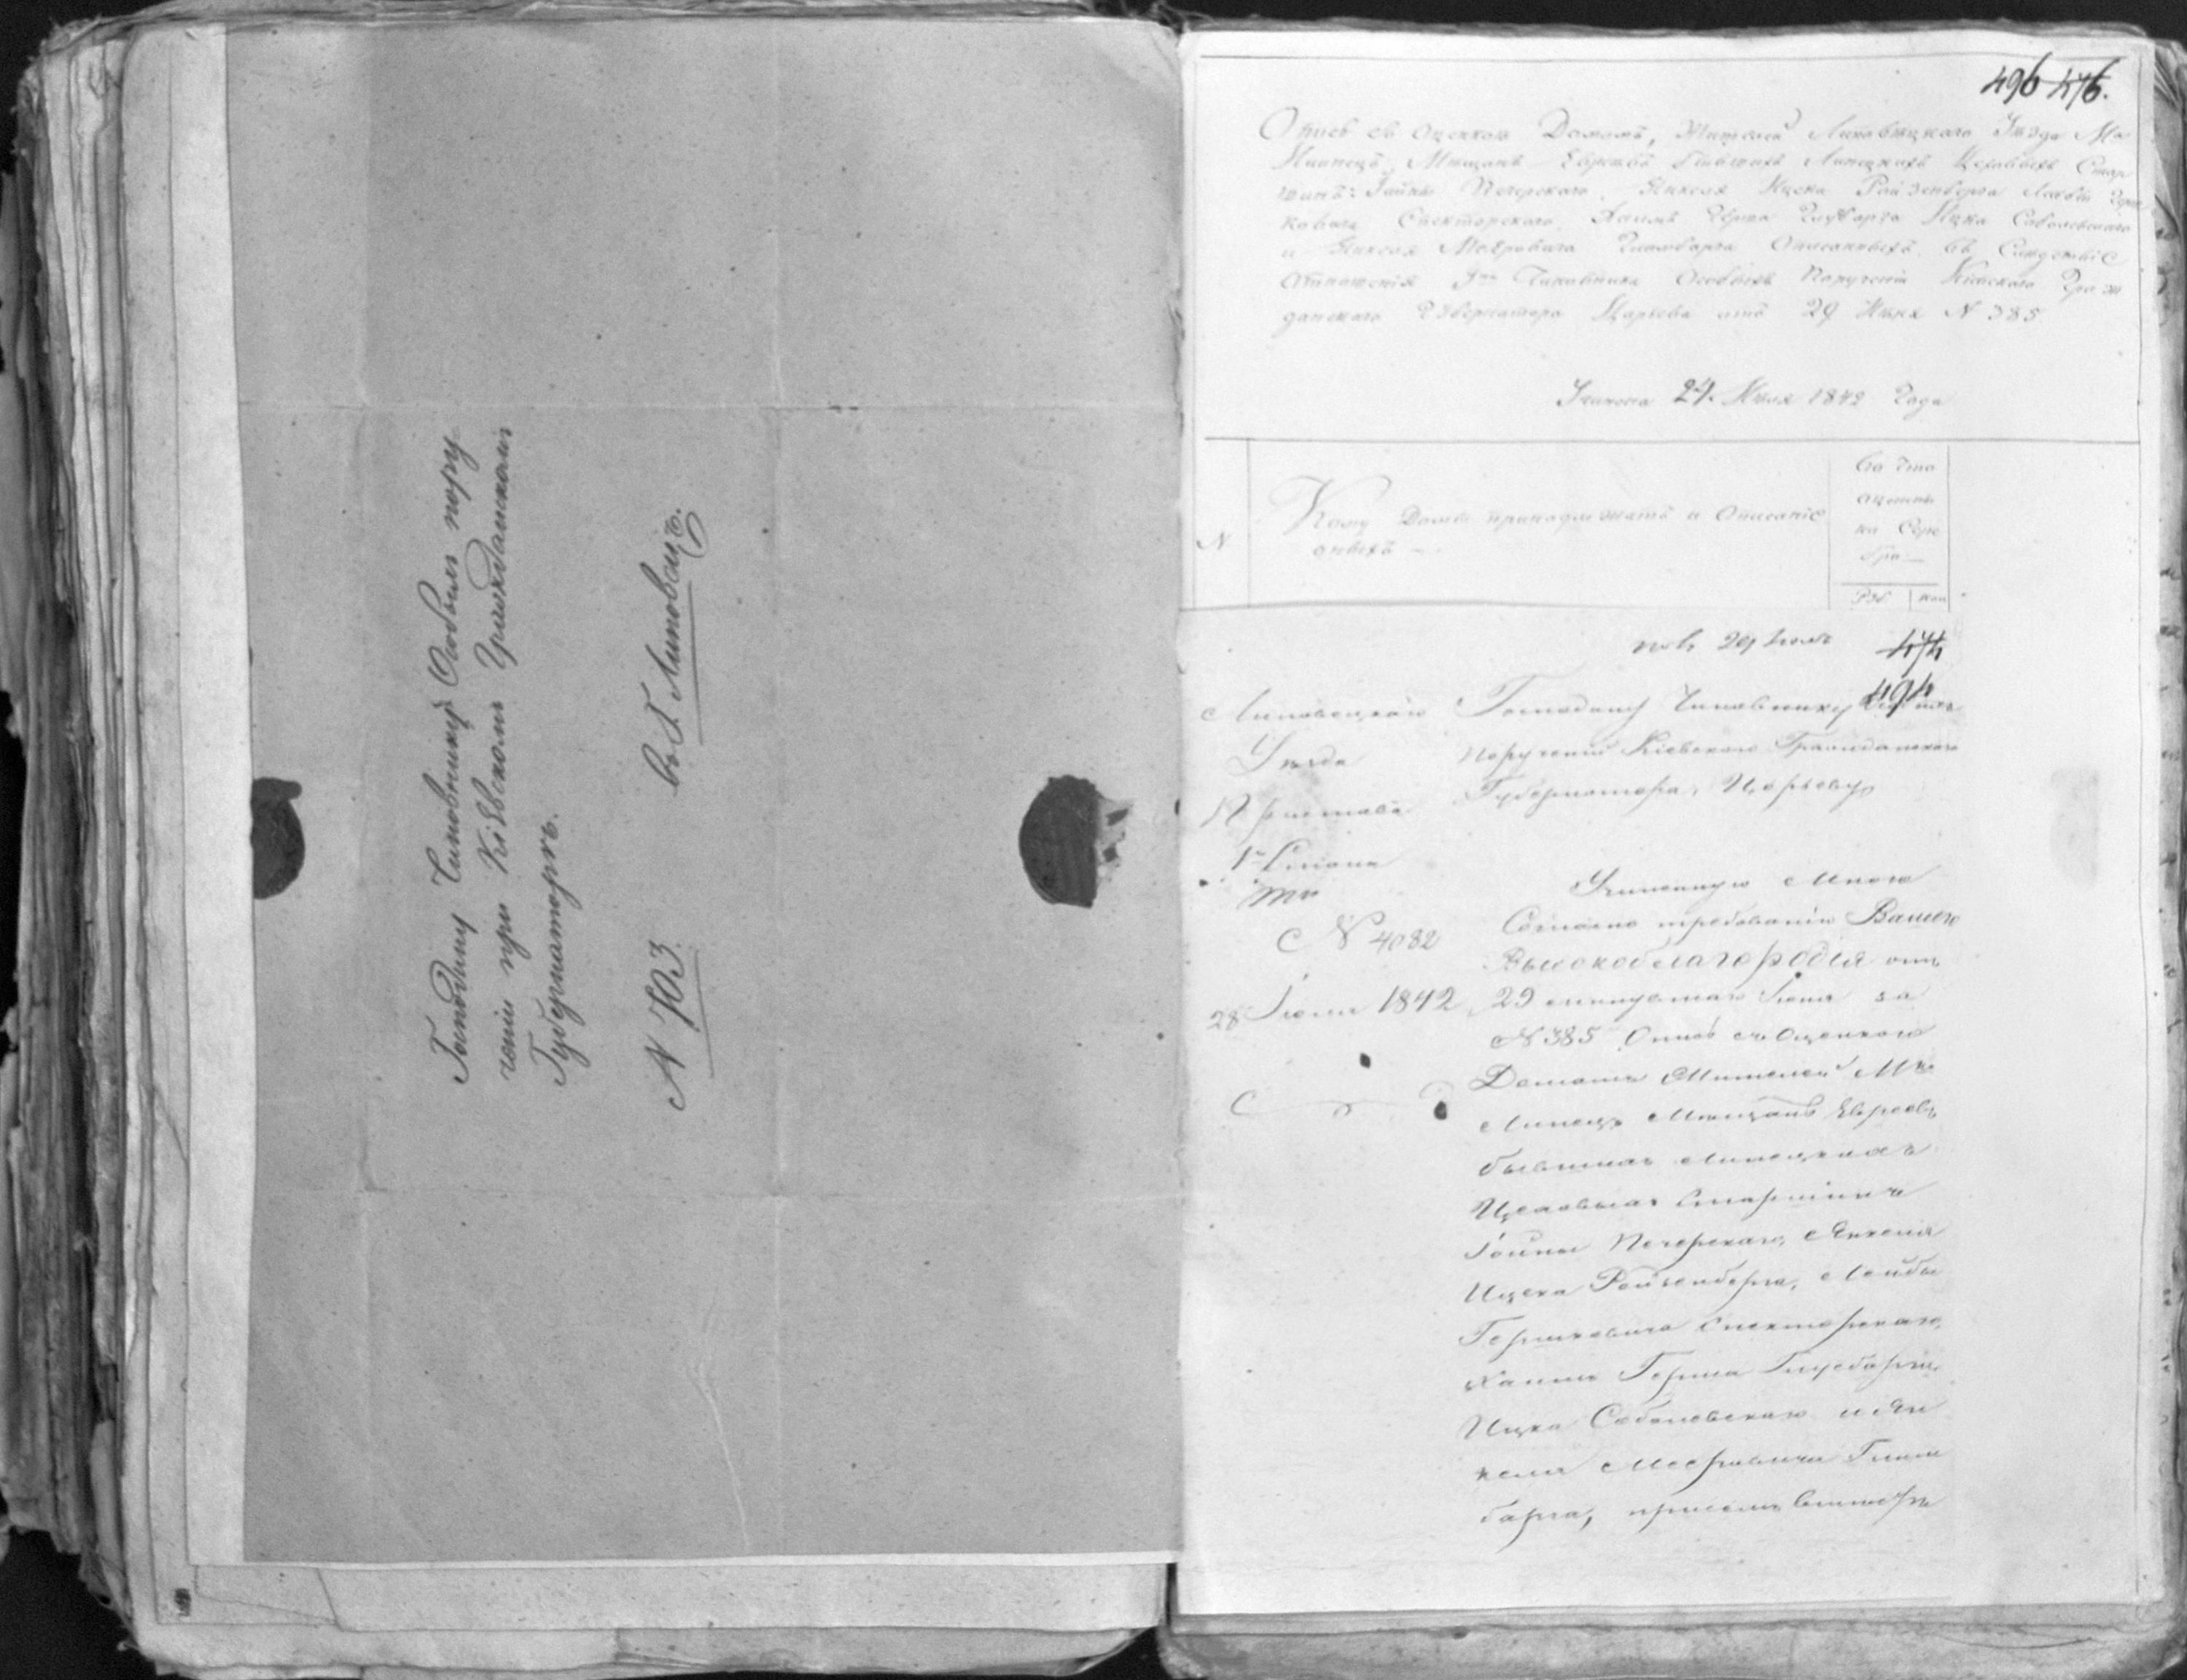 Господину Чиновнику Особыхъ пору
ченiй при Кiевскомъ Гражданскомъ
Губернаторѣ.
въ Г. Липовецъ.
N 703.
496 476.
Опись съ оценкою Домамъ, Жителей Липовецкаго Уѣзда Мѣ
Липецъ, Мѣщанъ Евреевъ бывшихъ Липецкихъ Цеховыхъ Стар
шинъ: Гойны Печерскаго, Янкеля Ицека Ройзенберга Лейбы Герш
ковича Спекторскаго, Хаима Герша Глузбарга Ицка Соболевскаго
и Янкеля Меѣровича Описанныхъ въ Следствiе
Отношенiя Гна Чиновника Особыхъ Порученiй Кiевскаго Граж
данскаго Губернатора Царева отъ 29 Июня N 385.
Учинена 24. Июля 1842 Года
N
Кому Домы принадлежатъ и Описанiе
оныхъ
Во что
оценены
на Сере
бро
Руб коп
29 Iюля
474
494
Липовецкаго
Уѣзда
Пристава
1го Стана
N 4082
28 Iюля 1842
Господину Чиновнику Особыхъ
Порученiй Кiевскаго Гражданскаго
Губернатора, Цареву
Учиненную Мною
Согласно требованiю Вашего
Высокоблагородiя отъ
29 минувшаго Iюня за
N 385 Опись съ Оценкою
Домамъ Жителей Мѣ
Липецъ Мѣщанъ Евреевъ
бывшихъ Липецкихъ
Цеховыхъ Старшинъ
Гойны Печерскаго, Янкеля
Ицека Ройзенберга, Лейбы
Гершковича Спекторскаго,
Хаима Герша Глузбарга
Ицка Соболевскаго и Ян
келя Меѣровича
барга, при семъ